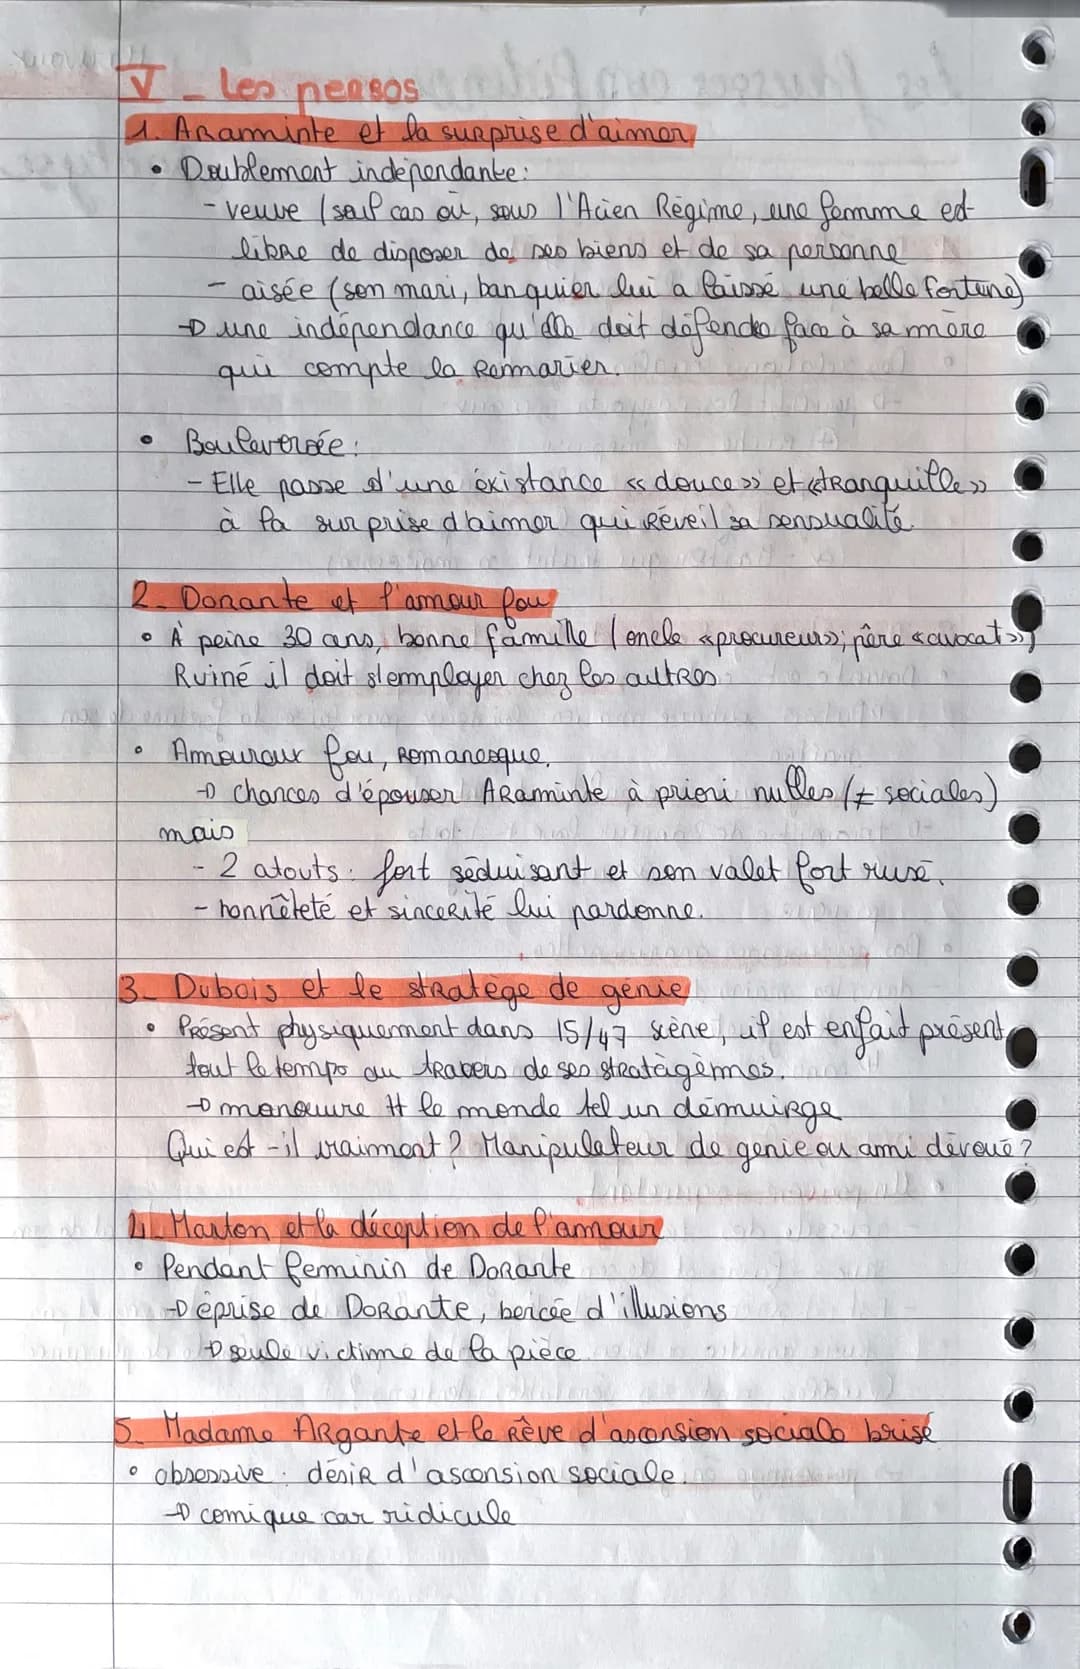 V - Les persos
1. Araminte et la surprise d'aimer
• Doublement indépendante:
- veuve (seul cas où, sous l'Acien Régime, une femme est
libre de disposer de ses biens et de sa personne
- aisée (son mari, banquier lui a laissé une belle fortune)
→ une indépendance qu'elle doit défendre face à sa mère
qui compte la remarier.
• Bouleversée:
- Elle passe d'une éxistance «douce» et «tranquille»
à la surprise d'aimer qui réveil sa sensualité
2. Dorante et l'amour fou
• À peine 30 ans, bonne famille (oncle «procureur»; père «avocat»)
Ruiné il doit s'employer chez les autres
• Amoureux fou, romanesque.
→ chances d'épouser Araminte à priori nulles (≠ sociales)
mais
- 2 atouts: fort séduisant et son valet fort rusé.
- honnêteté et sincérité lui pardonne.
3- Dubois et le stratège de génie
• Présent physiquement dans 15/47 scène, il est enfait présent
tout le temps au travers de ses stratagèmes.
→ manœuvre tt le monde tel un démuirge
Qui est-il vraiment? Manipulateur de genie ou ami dévoué?
4. Marton et la déception de l'amour
• Pendant feminin de Dorante
→ éprise de Dorante, bercée d'illusions
→ seule victime de la pièce
5- Madame Argante et le rêve d'ascension sociale brisé
• obsessive: désir d'ascension sociale.
→ comique car ridicule